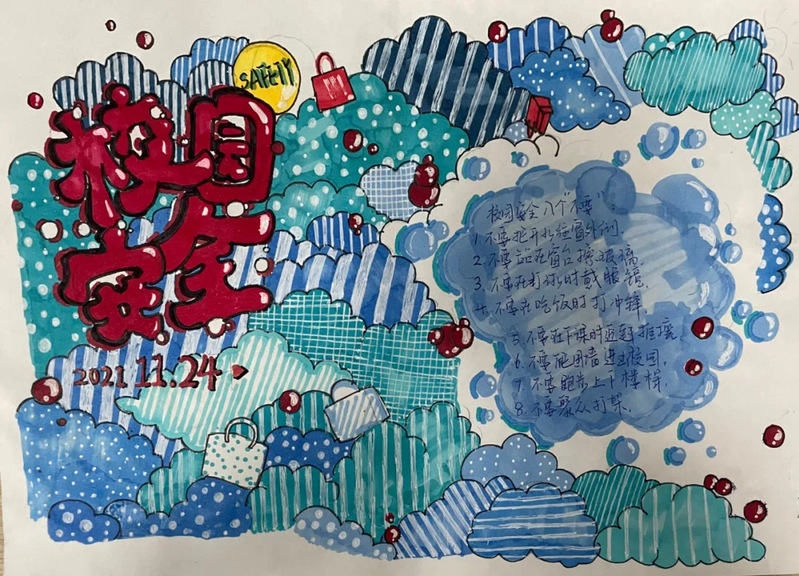 SAFETY
校园
安全
2021 11.24
校园安全八个"不要".
1. 不要把开水往窗外倒.
2. 不要站在窗台擦玻璃.
3. 不要在打球时戴眼镜.
4. 不要在吃饭时打冲锋.
5. 不要在下课时追逐推搡.
6. 不要爬围墙进出校园.
7. 不要跑步上下楼梯.
8. 不要聚众打架.